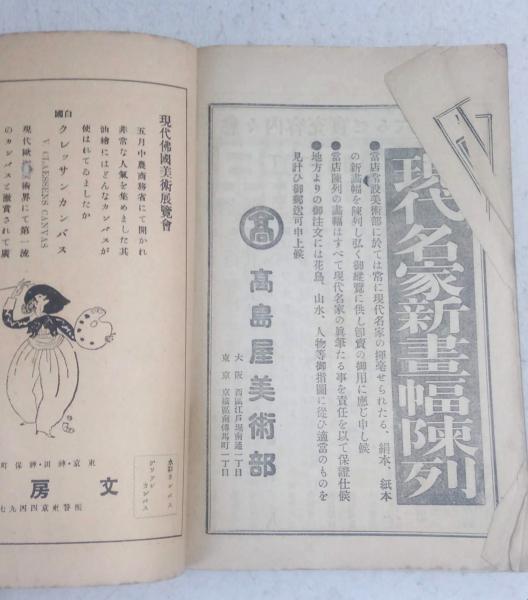 現代名家新畫幅陳列
●當店常設美術部に於ては常に現代名家の揮毫せられたる、絹本、紙本
の新畫幅を陳列し弘く御縱覽に供し卽賣の御用に應じ申し候
●當店陳列の畫幅はすべて現代名家の眞筆たる事を責任を以て保證仕候
●地方よりの御注文には花鳥、山水、人物等御指圖に從ひ適當のものを
見計ひ御郵送可申上候
髙
高島屋美術部
大阪
東京
現代佛國美術展覽會
五月中農商務省にて開かれ
非常な人氣を集めました其
油繪にはどんなカンバスが
使はれてゐましたか
白國
クレッサンカンバス
V. CLAESSENS CANVAS
術界にて第一流
のカンバスと激賞されて廣
東京・神田・神保町
文房
振替東京四四九七